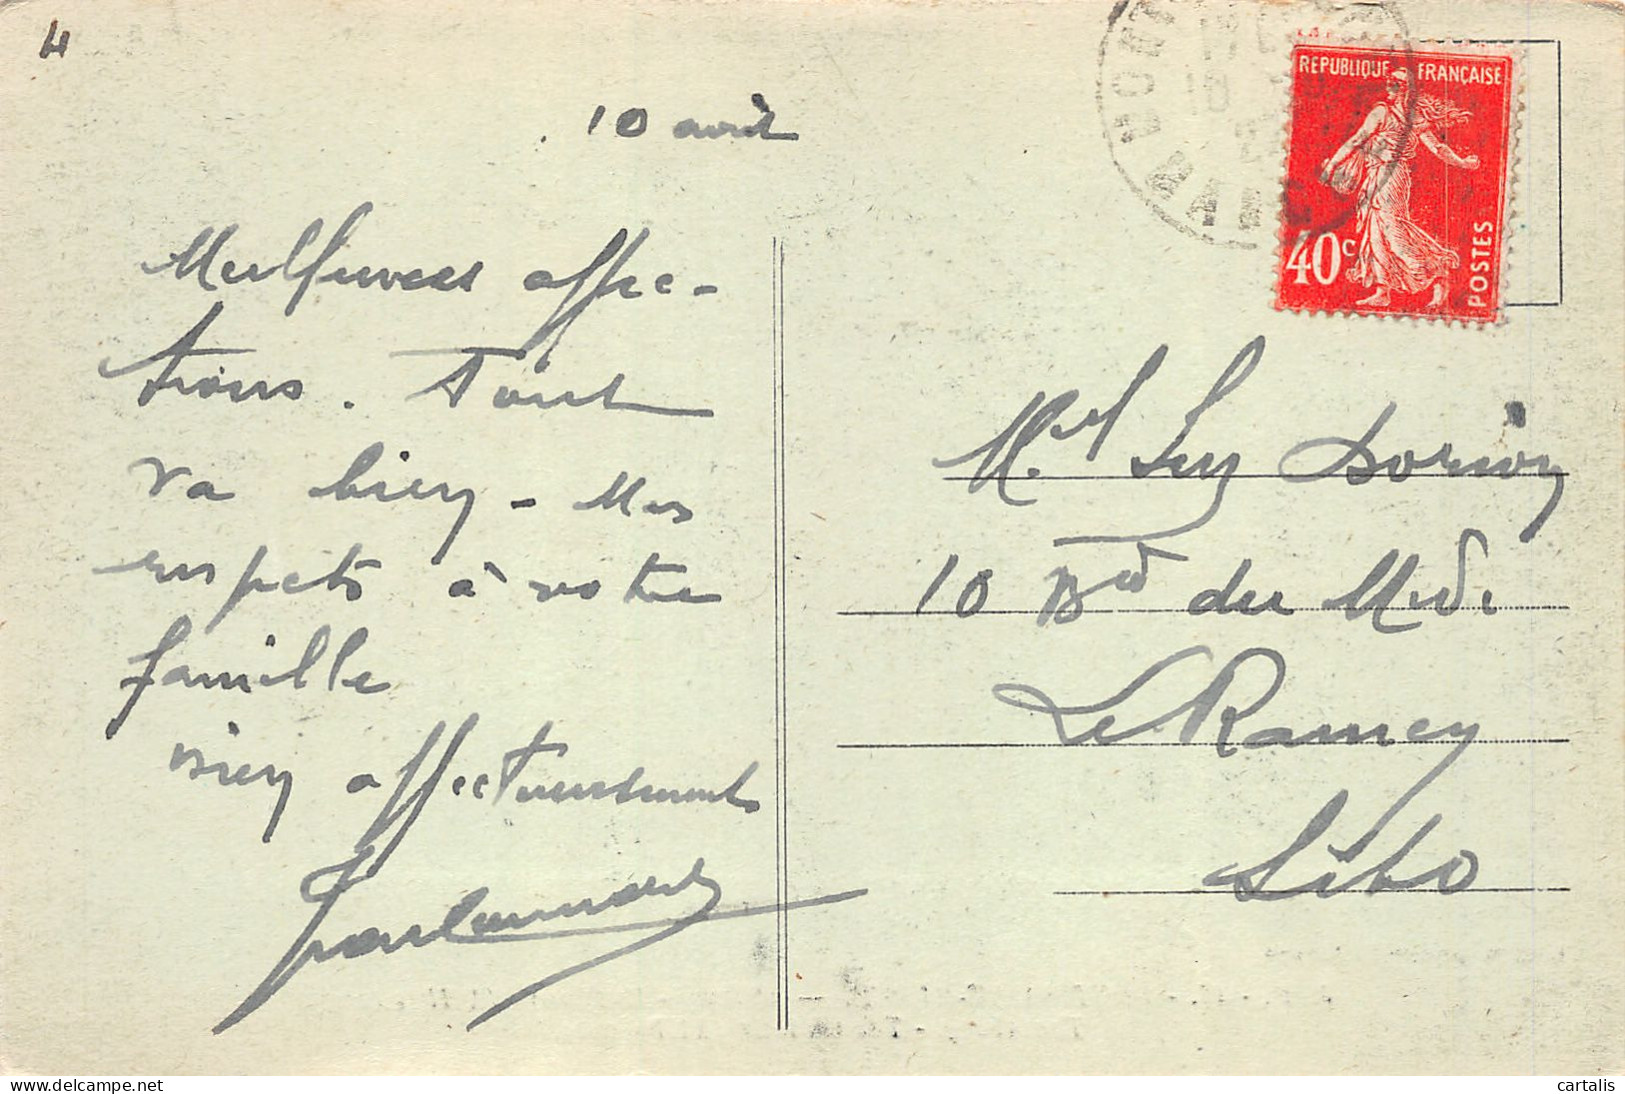 4
10 avril
Meilleures affec-
tions. Tout
va bien - Mes
respects à votre
famille
bien affectueusement
REPUBLIQUE FRANÇAISE
40c
POSTES
10 Bd du Midi
Le Raincy
cartalis